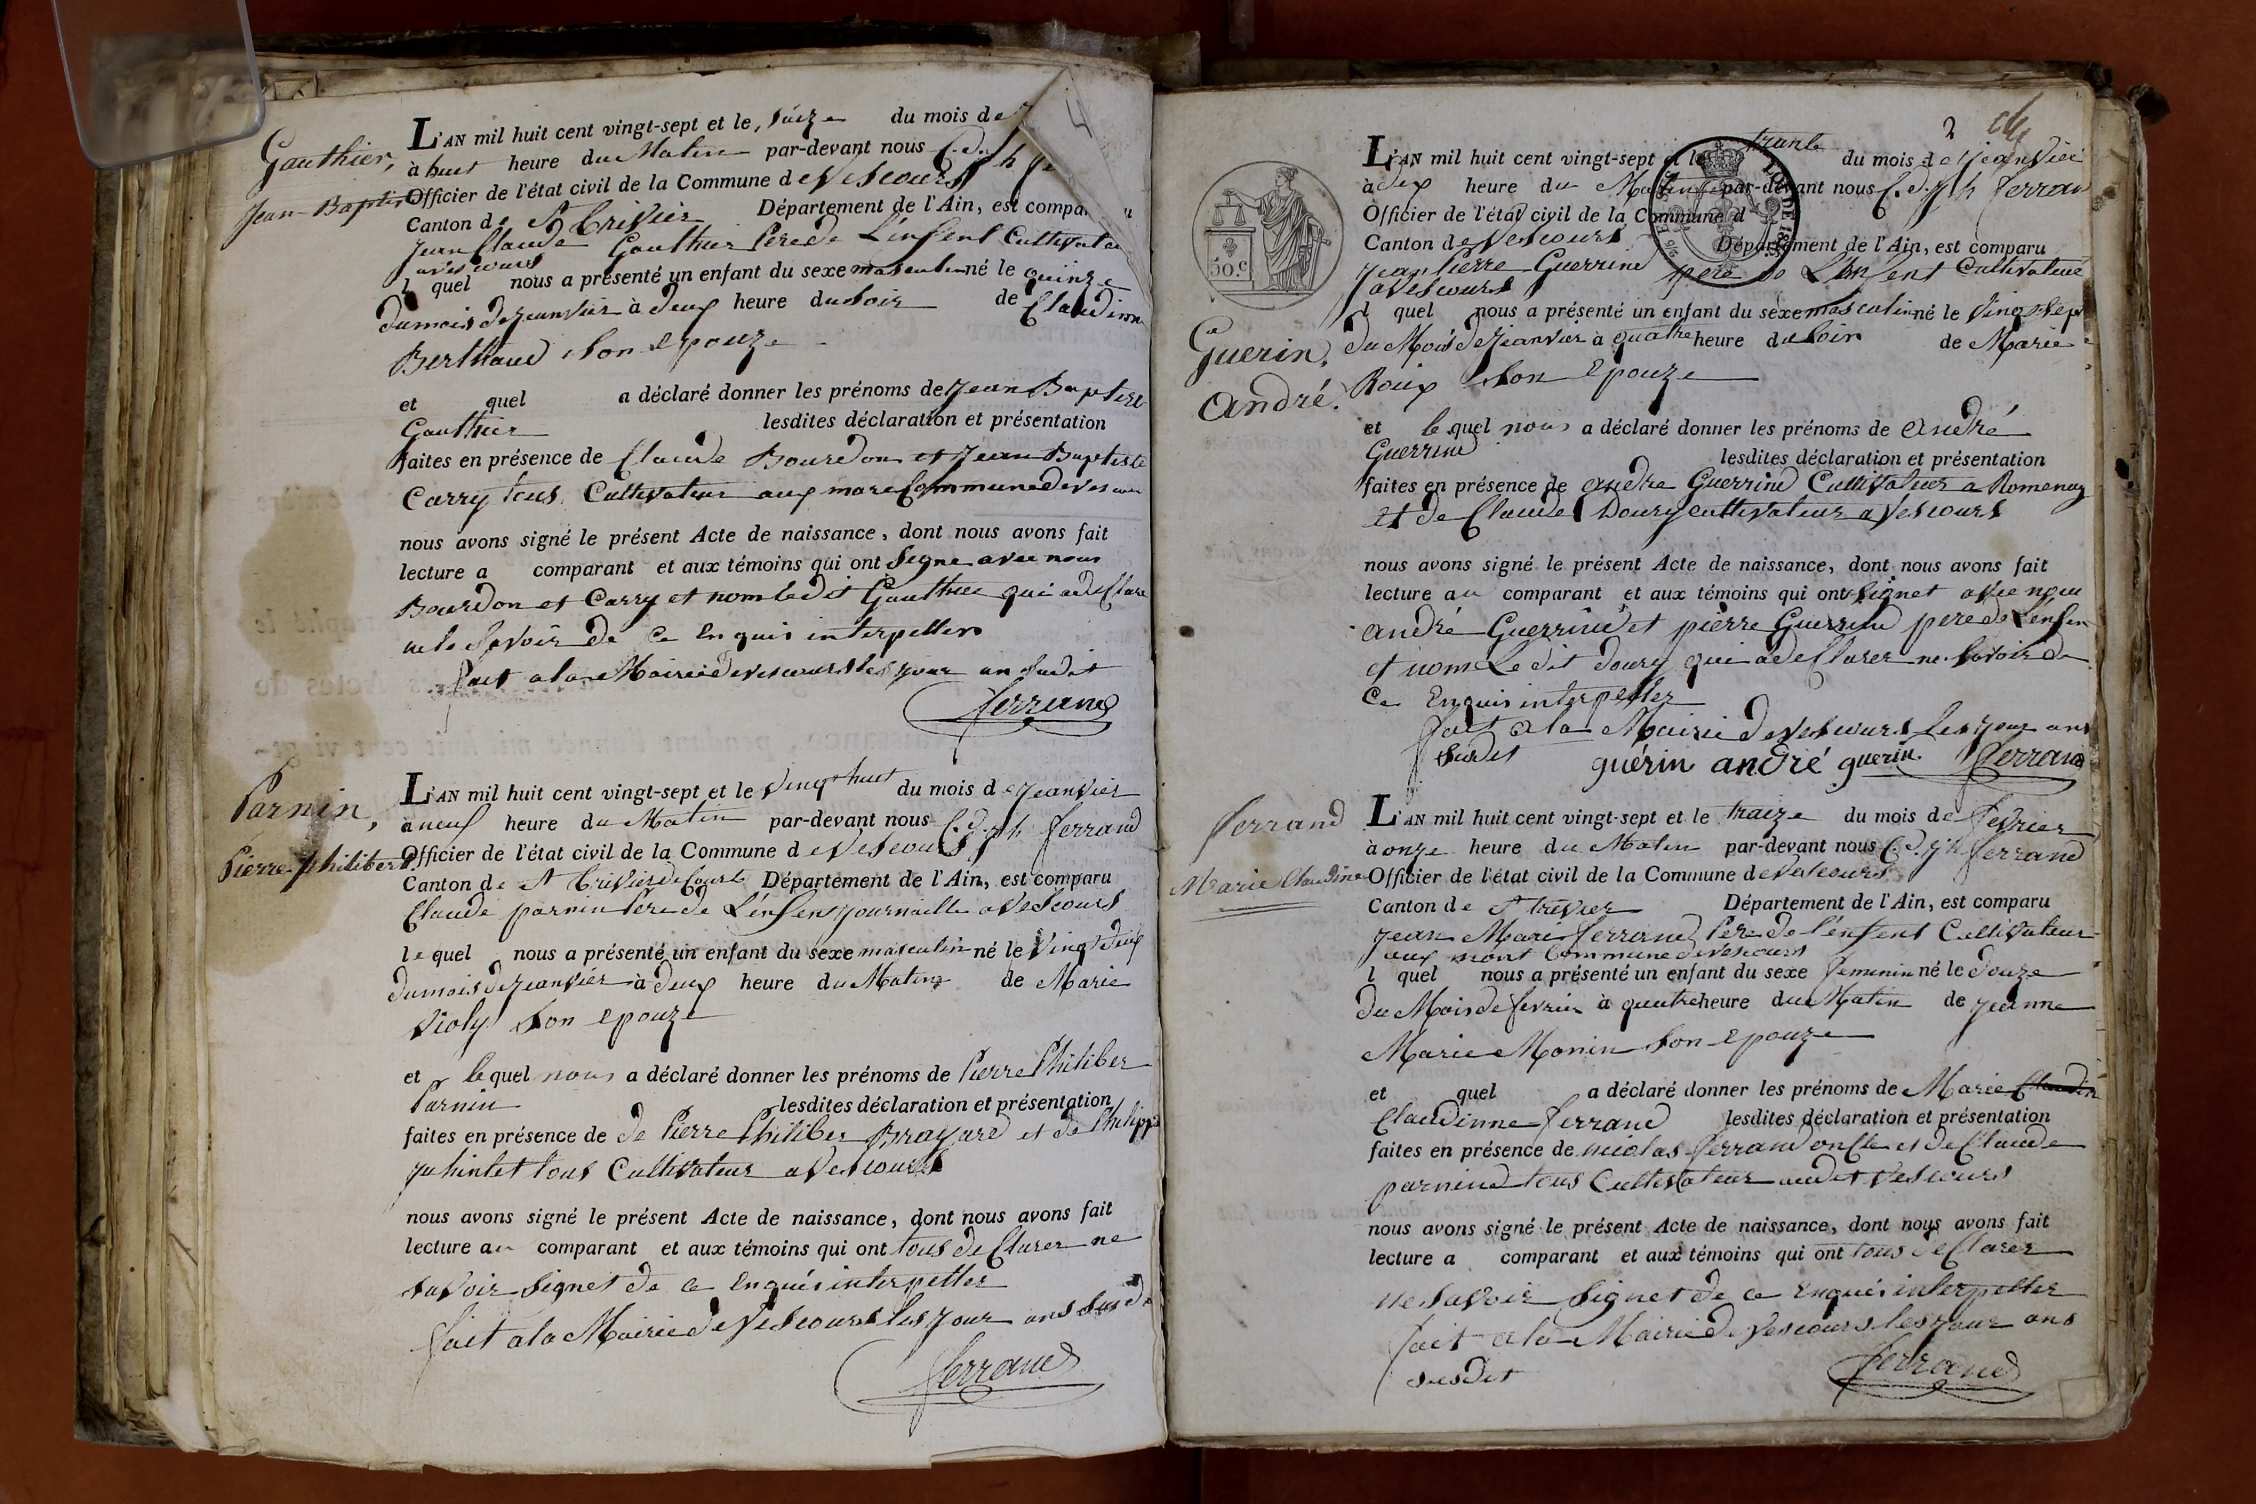 Gauthier,
Jean-Baptis
L'AN mil huit cent vingt-sept et le, Saize du mois de
à huit heure du Matin par-devant nous C. d.
Officier de l'état civil de la Commune de Vescours
Canton de St Trivier Département de l'Ain, est compa
Jean Claude Gauthier Pere de L'enfent Cultivate
a vescours
l quel nous a présenté un enfant du sexe masculin né le quinze
du mois de jeanvier à deux heure du Soir de Claudinne
Berthaud Son epouze
et quel a déclaré donner les prénoms de jean Baptiste
Gauthier lesdites déclaration et présentation
faites en présence de Claude Bourdon et jean Baptiste
Carry tous Cultivateur aux mare Commune de vescour
nous avons signé le présent Acte de naissance, dont nous avons fait
lecture a comparant et aux témoins qui ont Signe avec nous
Bourdon et Carry et nom le dit Gauthier qui a de Clare
ne le Savoir de Ce Enquis interpeller
fait a la Mairie de vescours les jour an Sudit
ferrand
Parnin,
Pierre philibert
L'AN mil huit cent vingt-sept et le vingt huit du mois de jeanvier
à neuf heure du Matin par-devant nous C. d. jh ferrand
Officier de l'état civil de la Commune de Vescours
Canton de St Trivier de Courte Département de l'Ain, est comparu
Claude parnin Pere de L'enfent journaille a Vescours
le quel nous a présenté un enfant du sexe masculin né le vingt deux
du mois de jeanvier à deux heure du Matin de Marie
violy Son epouze
et le quel nous a déclaré donner les prénoms de Pierre Philiber
Parnin lesdites déclaration et présentation
faites en présence de de Pierre Philiber Brayard et de Philippe
tous Cultivateur a Vescours
nous avons signé le présent Acte de naissance, dont nous avons fait
lecture au comparant et aux témoins qui ont tous de Clarer ne
savoir Signet de ce Enquis interpeller
fait a la Mairie de Vescours les jour ans Susde
ferrand
2
50.C
LOI DE 18
Guerin,
André.
L'AN mil huit cent vingt-sept et le trante du mois de jeanvier
à dix heure du Matin par-devant nous C. d. jh ferran
Officier de l'état civil de la Commune d
Canton de Vescours Département de l'Ain, est comparu
jean Pierre Guerrind pere de L'enfent Cultivateur
a Vescours
l quel nous a présenté un enfant du sexe masculin né le vingt sept
du Mois de jeanvier à quatre heure du Soir de Marie
Roux Son Epouze
et le quel nous a déclaré donner les prénoms de André
Guerrind lesdites déclaration et présentation
faites en présence de andre Guerrind Cultivateur a Romenay
et de Claude Doury cultivateur a Vescours
nous avons signé le présent Acte de naissance, dont nous avons fait
lecture au comparant et aux témoins qui ont Signet avec nous
andré Guerrind et pierre Guerrind pere de L'enfen
et nom Le dit doury qui a de Clarer ne Savoir de
Ce Enquis interpeller
fait a la Mairie de Vescours Les jour ans
Susdit guérin andré guerin. ferrand
ferrand
Marie Claudine
L'AN mil huit cent vingt-sept et le traize du mois de fevrier
à onze heure du Matin par-devant nous C. d. jh ferrand
Officier de l'état civil de la Commune de Vescours
Canton de St trevier Département de l'Ain, est comparu
jean Marie ferrand Pere de l'enfent Cultivateur
aux mont Commune de vescours
l quel nous a présenté un enfant du sexe feminin né le douze
du Mois de fevrier à quatre heure du Matin de jeanne
Marie Monin Son epouze
et quel a déclaré donner les prénoms de Marie Claudin
Claudinne ferrand lesdites déclaration et présentation
faites en présence de nicolas ferrand oncle et de Claude
parnind tous Cultivateur audit Vescours
nous avons signé le présent Acte de naissance, dont nous avons fait
lecture a comparant et aux témoins qui ont tous de Clarer
ne Savoir Signet de ce Enquis interpeller
fait a la Mairie de Vescours les jour ans
susdit
ferrand